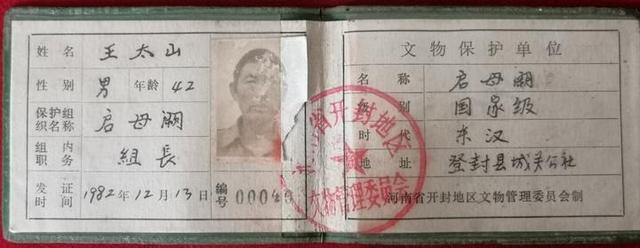 姓名 王太山
性别 男 年龄 42
保护组织名称 启母阙
组内职务 组長
发证时间 1982年12月13日 编号
文物保护单位
名称 启母阙
级别 国家级
时代 东汉
地址 登封县城关公社
河南省开封地区文物管理委员会制
省开封地区
文物管理委员会